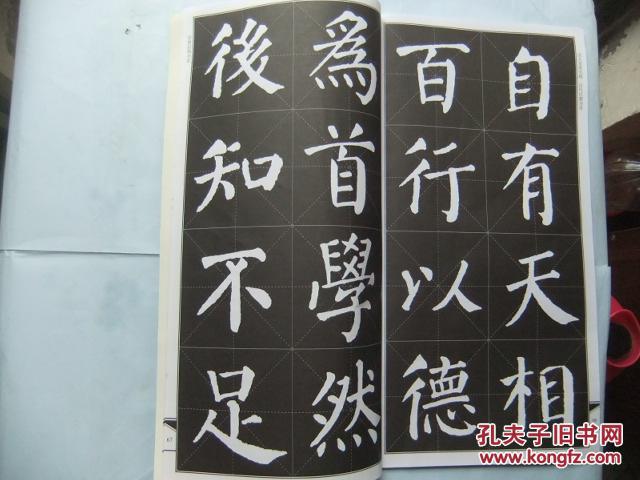 自有天相
百行以德
為首學然
後知不足
67
孔夫子旧书网
www.kongfz.com